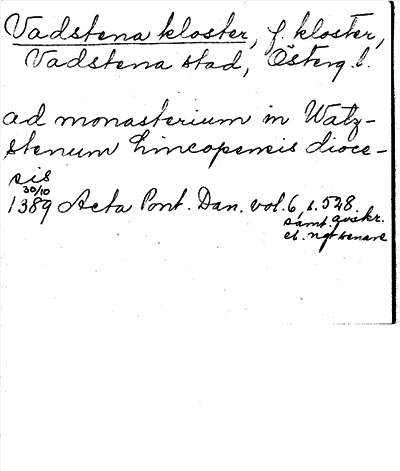 Vadstena kloster, f. kloster,
Vadstena stad, Österg. l.
ad monasterium in Watz-
stenum Lincopensis dioce-
sis
30/10
1389 Acta Pont. Dan. vol. 6, s. 548.
samt. avskr.
el. ngt senare